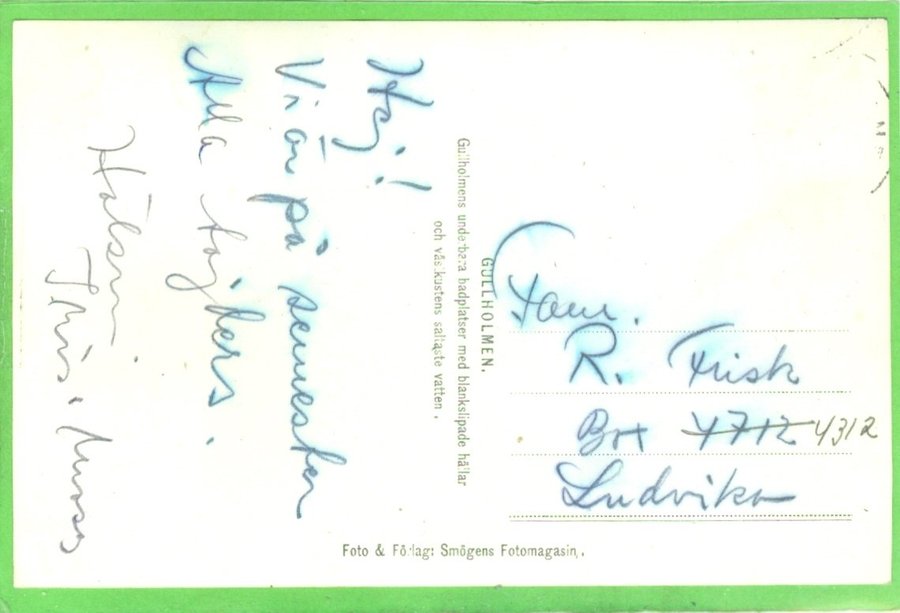 Hej!
Vi är på semester
Alla tajders.
Hälsn
GULLHOLMEN.
Gullholmens underbara badplatser med blankslipade hällar
och västkustens saltaste vatten.
Fam.
R. Frisk
Box 4712 4312
Ludvika
Foto & Förlag: Smögens Fotomagasin.